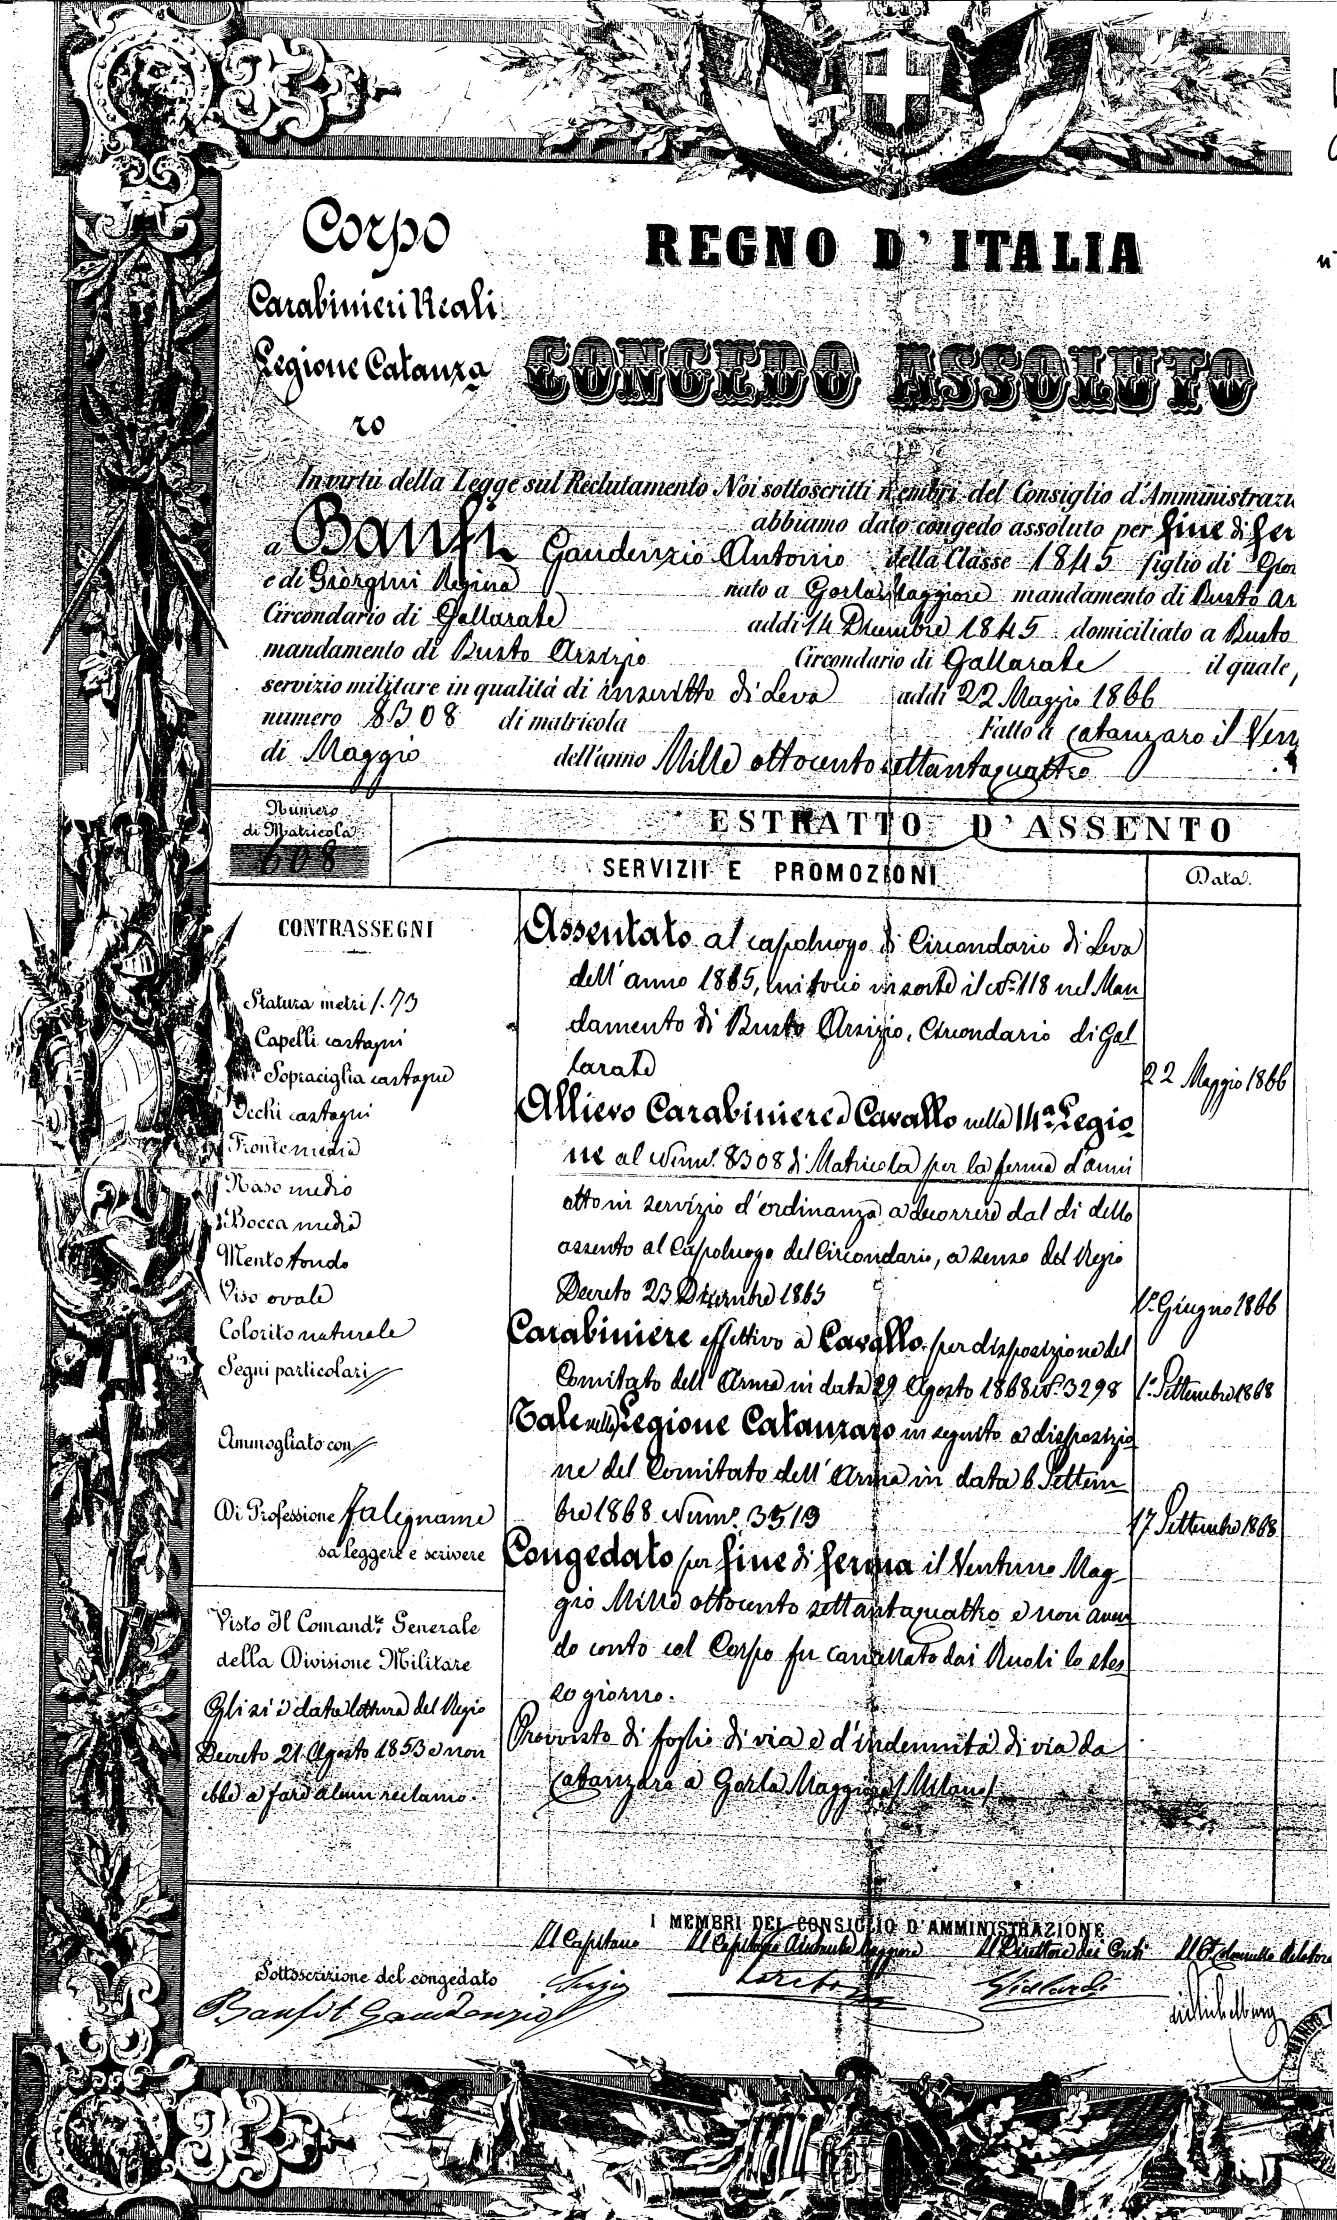 Corpo
Carabinieri Reali
Legione Catanza
ro
REGNO D'ITALIA
CONGEDO ASSOLUTO
In virtù della Legge sul Reclutamento Noi sottoscritti membri del Consiglio d'Amministrazi
abbiamo dato congedo assoluto per fine di fer
a Banfi Gaudenzio Antonio della Classe 1845 figlio di
e di Giorgini Regina nato a Gorla Maggiore mandamento di Busto Ar
Circondario di Gallarate addi 14 Dicembre 1845 domiciliato a Busto
mandamento di Busto Arsizio Circondario di Gallarate il quale,
servizio militare in qualità di inscritto di Leva addi 22 Maggio 1866
numero 8308 di matricola Fatto a Catanzaro il Ven
di Maggio dell'anno Mille ottocento settantaquattro
Numero
di Matricola
608
ESTRATTO D'ASSENTO
SERVIZII E PROMOZIONI
Data.
CONTRASSEGNI
Statura metri 1.73
Capelli castagni
Sopraciglia castagne
Occhi castagni
Fronte media
Naso medio
Bocca media
Mento tondo
Viso ovale
Colorito naturale
Segni particolari //
Ammogliato con //
Di Professione Falegname
sa leggere e scrivere
Visto Il Comand.te Generale
della Divisione Militare
Gli si è data lettura del Regio
Decreto 21 Agosto 1853 e non
ebbe a fare alcun reclamo.
Assentato al capoluogo di Circondario di Leva
dell'anno 1865, in sorte il N.º 118 nel Man
damento di Busto Arsizio, Circondario di Gal
larate
22 Maggio 1866
Allievo Carabiniere a Cavallo nella 14ª Legio
ne al Num.º 8308 di Matricola per la ferma d'anni
otto in servizio d'ordinanza a decorrere dal di dello
assento al Capoluogo del Circondario, a senso del Regio
Decreto 23 Dicembre 1865
1º Giugno 1866
Carabiniere effettivo a Cavallo per disposizione del
Comitato dell'Arma in data 29 Agosto 1868 N.º 3298
1º Settembre 1868
Tale nella Legione Catanzaro in seguito a disposizio
ne del Comitato dell'Arma in data 6 Settem
bre 1868 Num.º 3519
17 Settembre 1868
Congedato per fine di ferma il Ventuno Mag-
gio Mille ottocento settantaquattro e non aven
do conto col Corpo fu cancellato dai Ruoli lo stes
so giorno.
Provvisto di foglio di via e d'indennità di via da
Catanzaro a Gorla Maggiore (Milano)
I MEMBRI DEL CONSIGLIO D'AMMINISTRAZIONE
Il Capitano Il Capitano Aiutante Maggiore Il Direttore dei Conti Il Relatore
Sottoscrizione del congedato
Banfi Gaudenzio